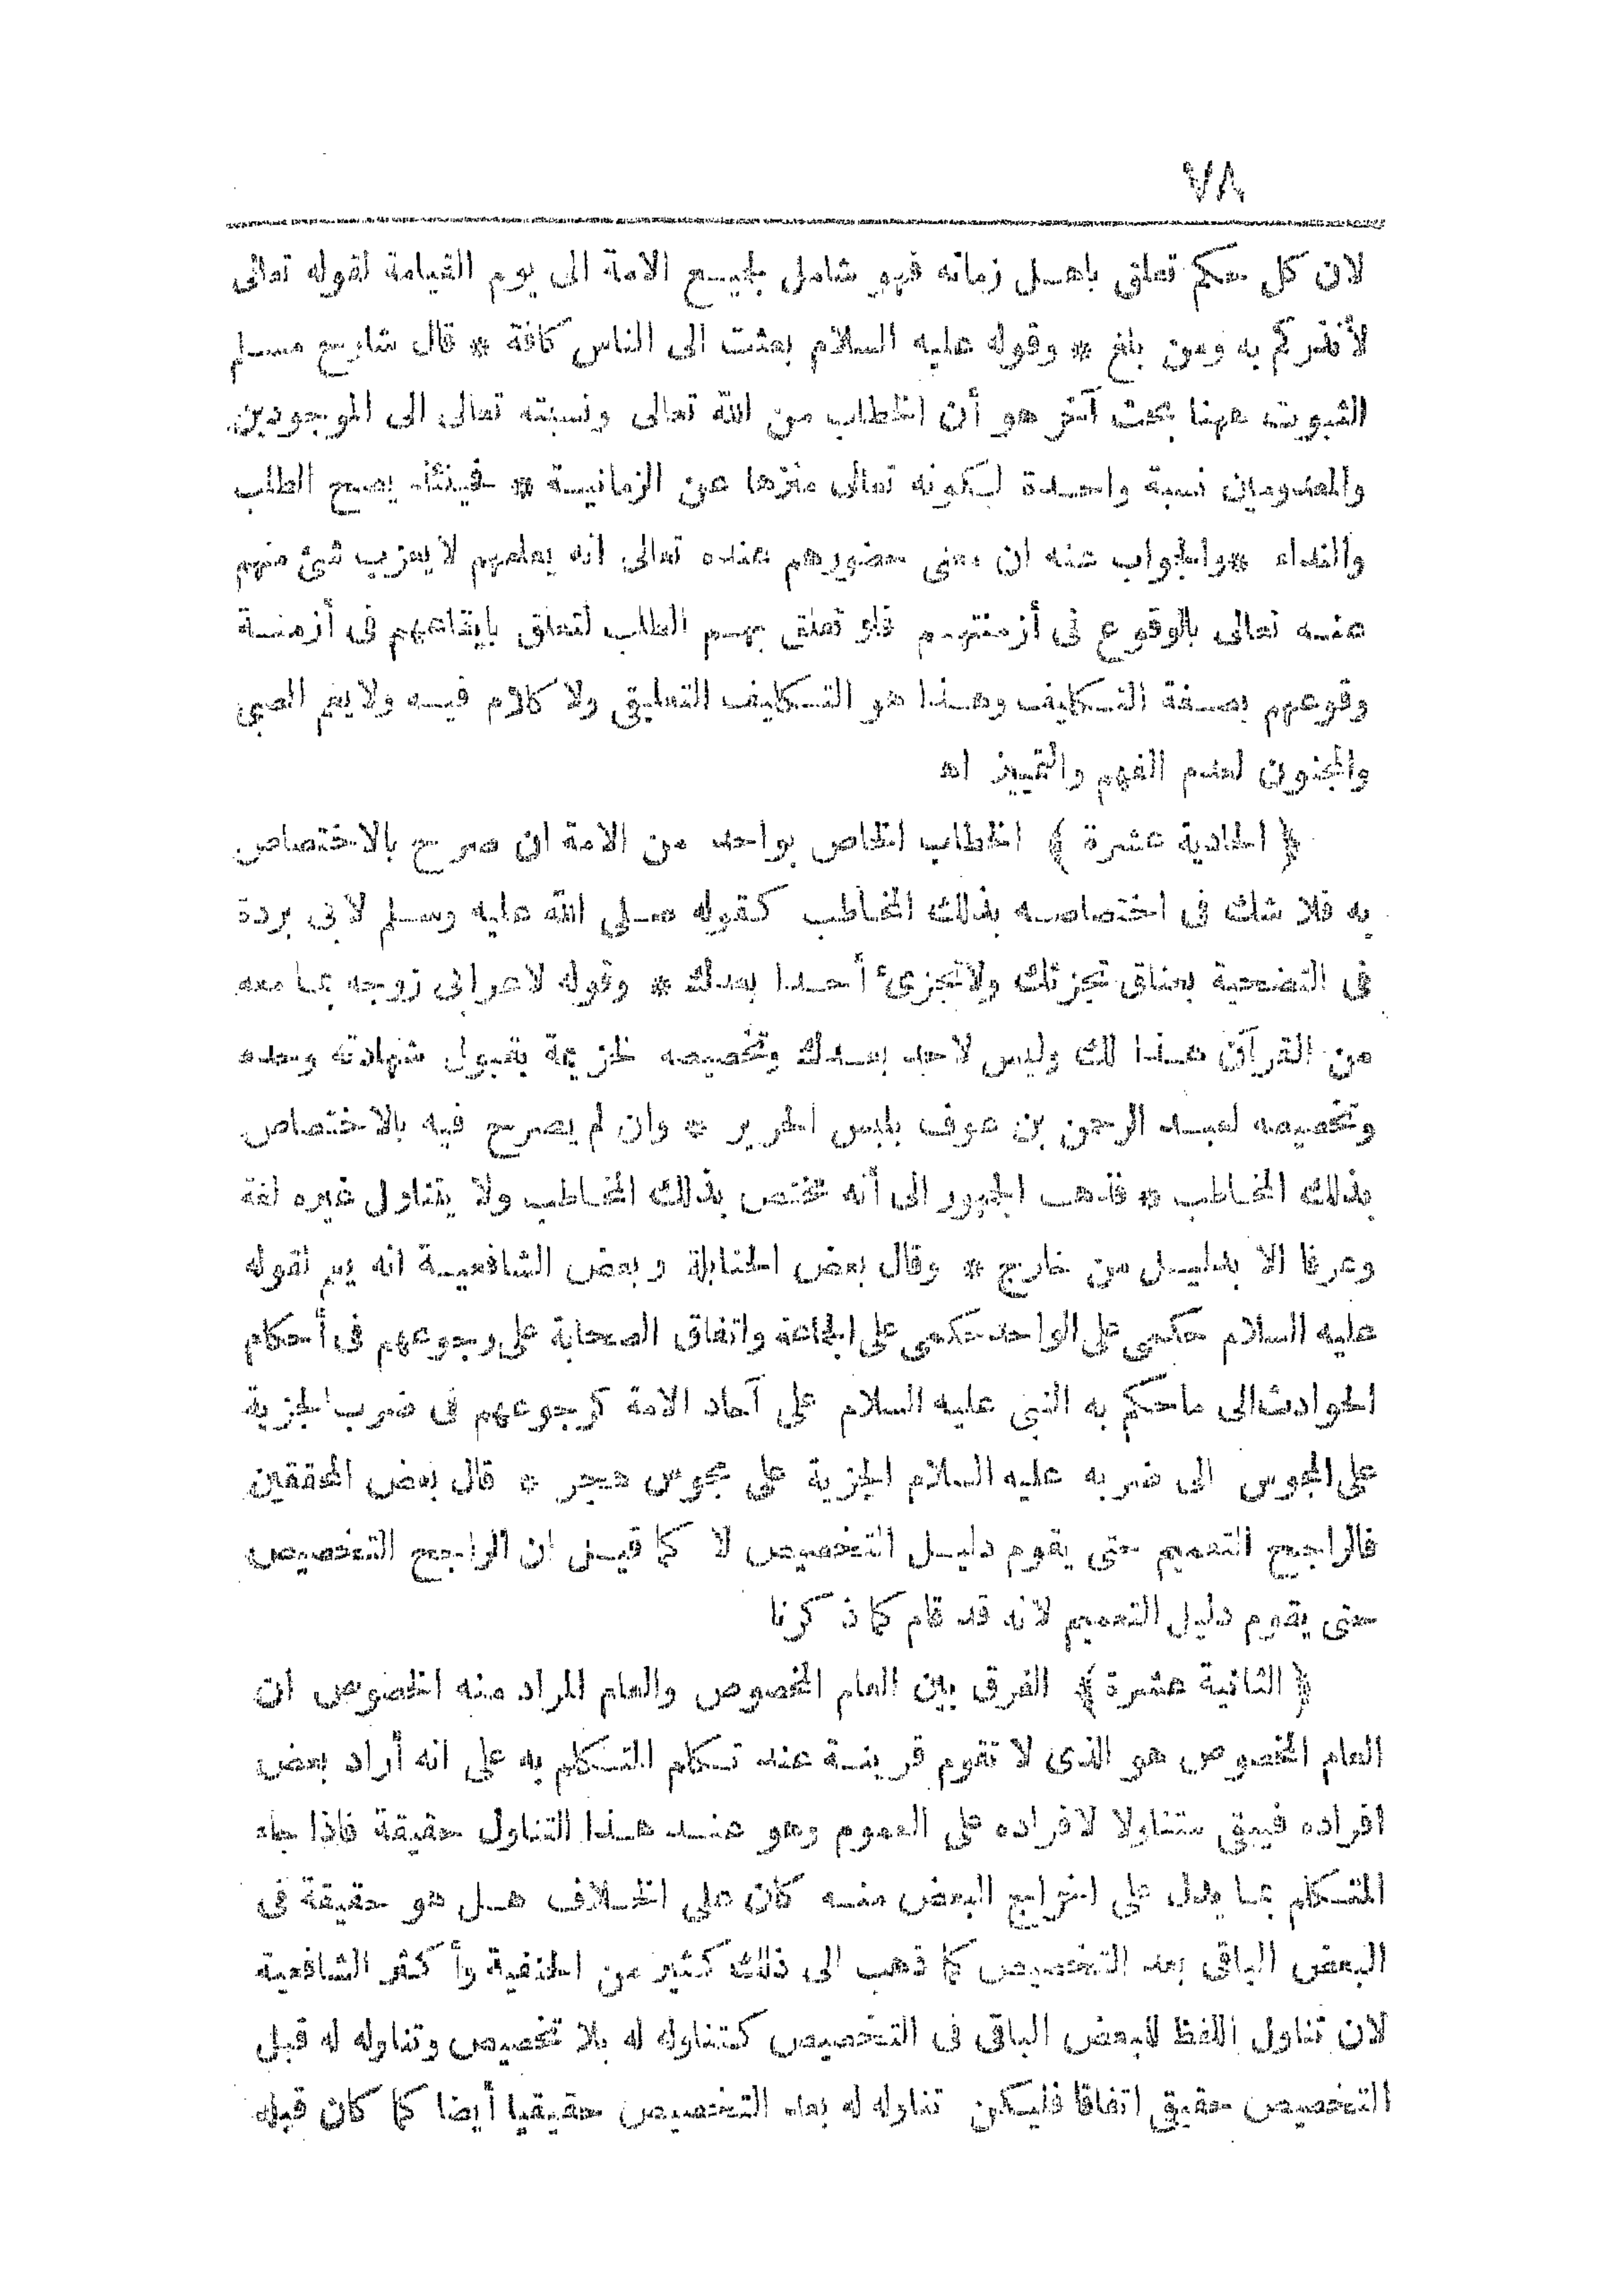 ٧٨
لان كل حكم تعلق باهل زمانه فهو شامل لجميع الامة الى يوم القيامة لقوله تعالى
لأنذركم به ومن بلغ * وقوله عليه السلام بعثت الى الناس كافة * قال شارح مسلم
الثبوت ههنا بحث آخر هو أن الخطاب من الله تعالى ونسبته تعالى الى الموجودين
والمعدومين نسبة واحدة لكونه تعالى منزها عن الزمانية * فحينئذ يصح الطلب
والنداء * والجواب عنه ان معنى حضورهم عنده تعالى انه يعلمهم لا يعزب شئ منهم
عنه تعالى بالوقوع فى أزمنتهم فلو تعلق بهم الطلب لتعلق بايقاعهم فى أزمنة
وقوعهم بصفة التكليف وهذا هو التكليف التعليقى ولا كلام فيه ولا يعم الصبى
والمجنون لعدم الفهم والتمييز اه
﴿ الحادية عشرة ﴾ الخطاب الخاص بواحد من الامة ان صرح بالاختصاص
به فلا شك فى اختصاصه بذلك المخاطب كقوله صلى الله عليه وسلم لابى بردة
فى التضحية بعناق تجزئك ولا تجزئ أحدا بعدك * وقوله لاعرابى زوجه بما معه
من القرآن هذا لك وليس لاحد بعدك وتخصيصه لخزيمة بقبول شهادته وحده
وتخصيصه لعبد الرحمن بن عوف بلبس الحرير * وان لم يصرح فيه بالاختصاص
بذلك المخاطب * فذهب الجمهور الى أنه مختص بذلك المخاطب ولا يتناول غيره لغة
وعرفا الا بدليل من خارج * وقال بعض الحنابلة وبعض الشافعية انه يعم لقوله
عليه السلام حكمى على الواحد حكمى على الجماعة واتفاق الصحابة على رجوعهم فى أحكام
الحوادث الى ما حكم به النبى عليه السلام على آحاد الامة كرجوعهم فى ضرب الجزية
على المجوس الى ضربه عليه السلام الجزية على مجوس هجر * قال بعض المحققين
فالراجح التعميم حتى يقوم دليل التخصيص لا كما قيل ان الراجح التخصيص
حتى يقوم دليل التعميم لانه قد قام كما ذكرنا
﴿ الثانية عشرة ﴾ الفرق بين العام المخصوص والعام المراد منه الخصوص ان
العام المخصوص هو الذى لا تقوم قرينة عند تكلم المتكلم به على انه أراد بعض
افراده فيبقى متناولا لافراده على العموم وهو عند هذا التناول حقيقة فاذا جاء
المتكلم بما يدل على اخراج البعض منه كان على الخلاف هل هو حقيقة فى
البعض الباقى بعد التخصيص كما ذهب الى ذلك كثير من الحنفية وأكثر الشافعية
لان تناول اللفظ للبعض الباقى فى التخصيص كتناوله له بلا تخصيص وتناوله له قبل
التخصيص حقيقى اتفاقا فليكن تناوله له بعد التخصيص حقيقيا أيضا كما كان قبله